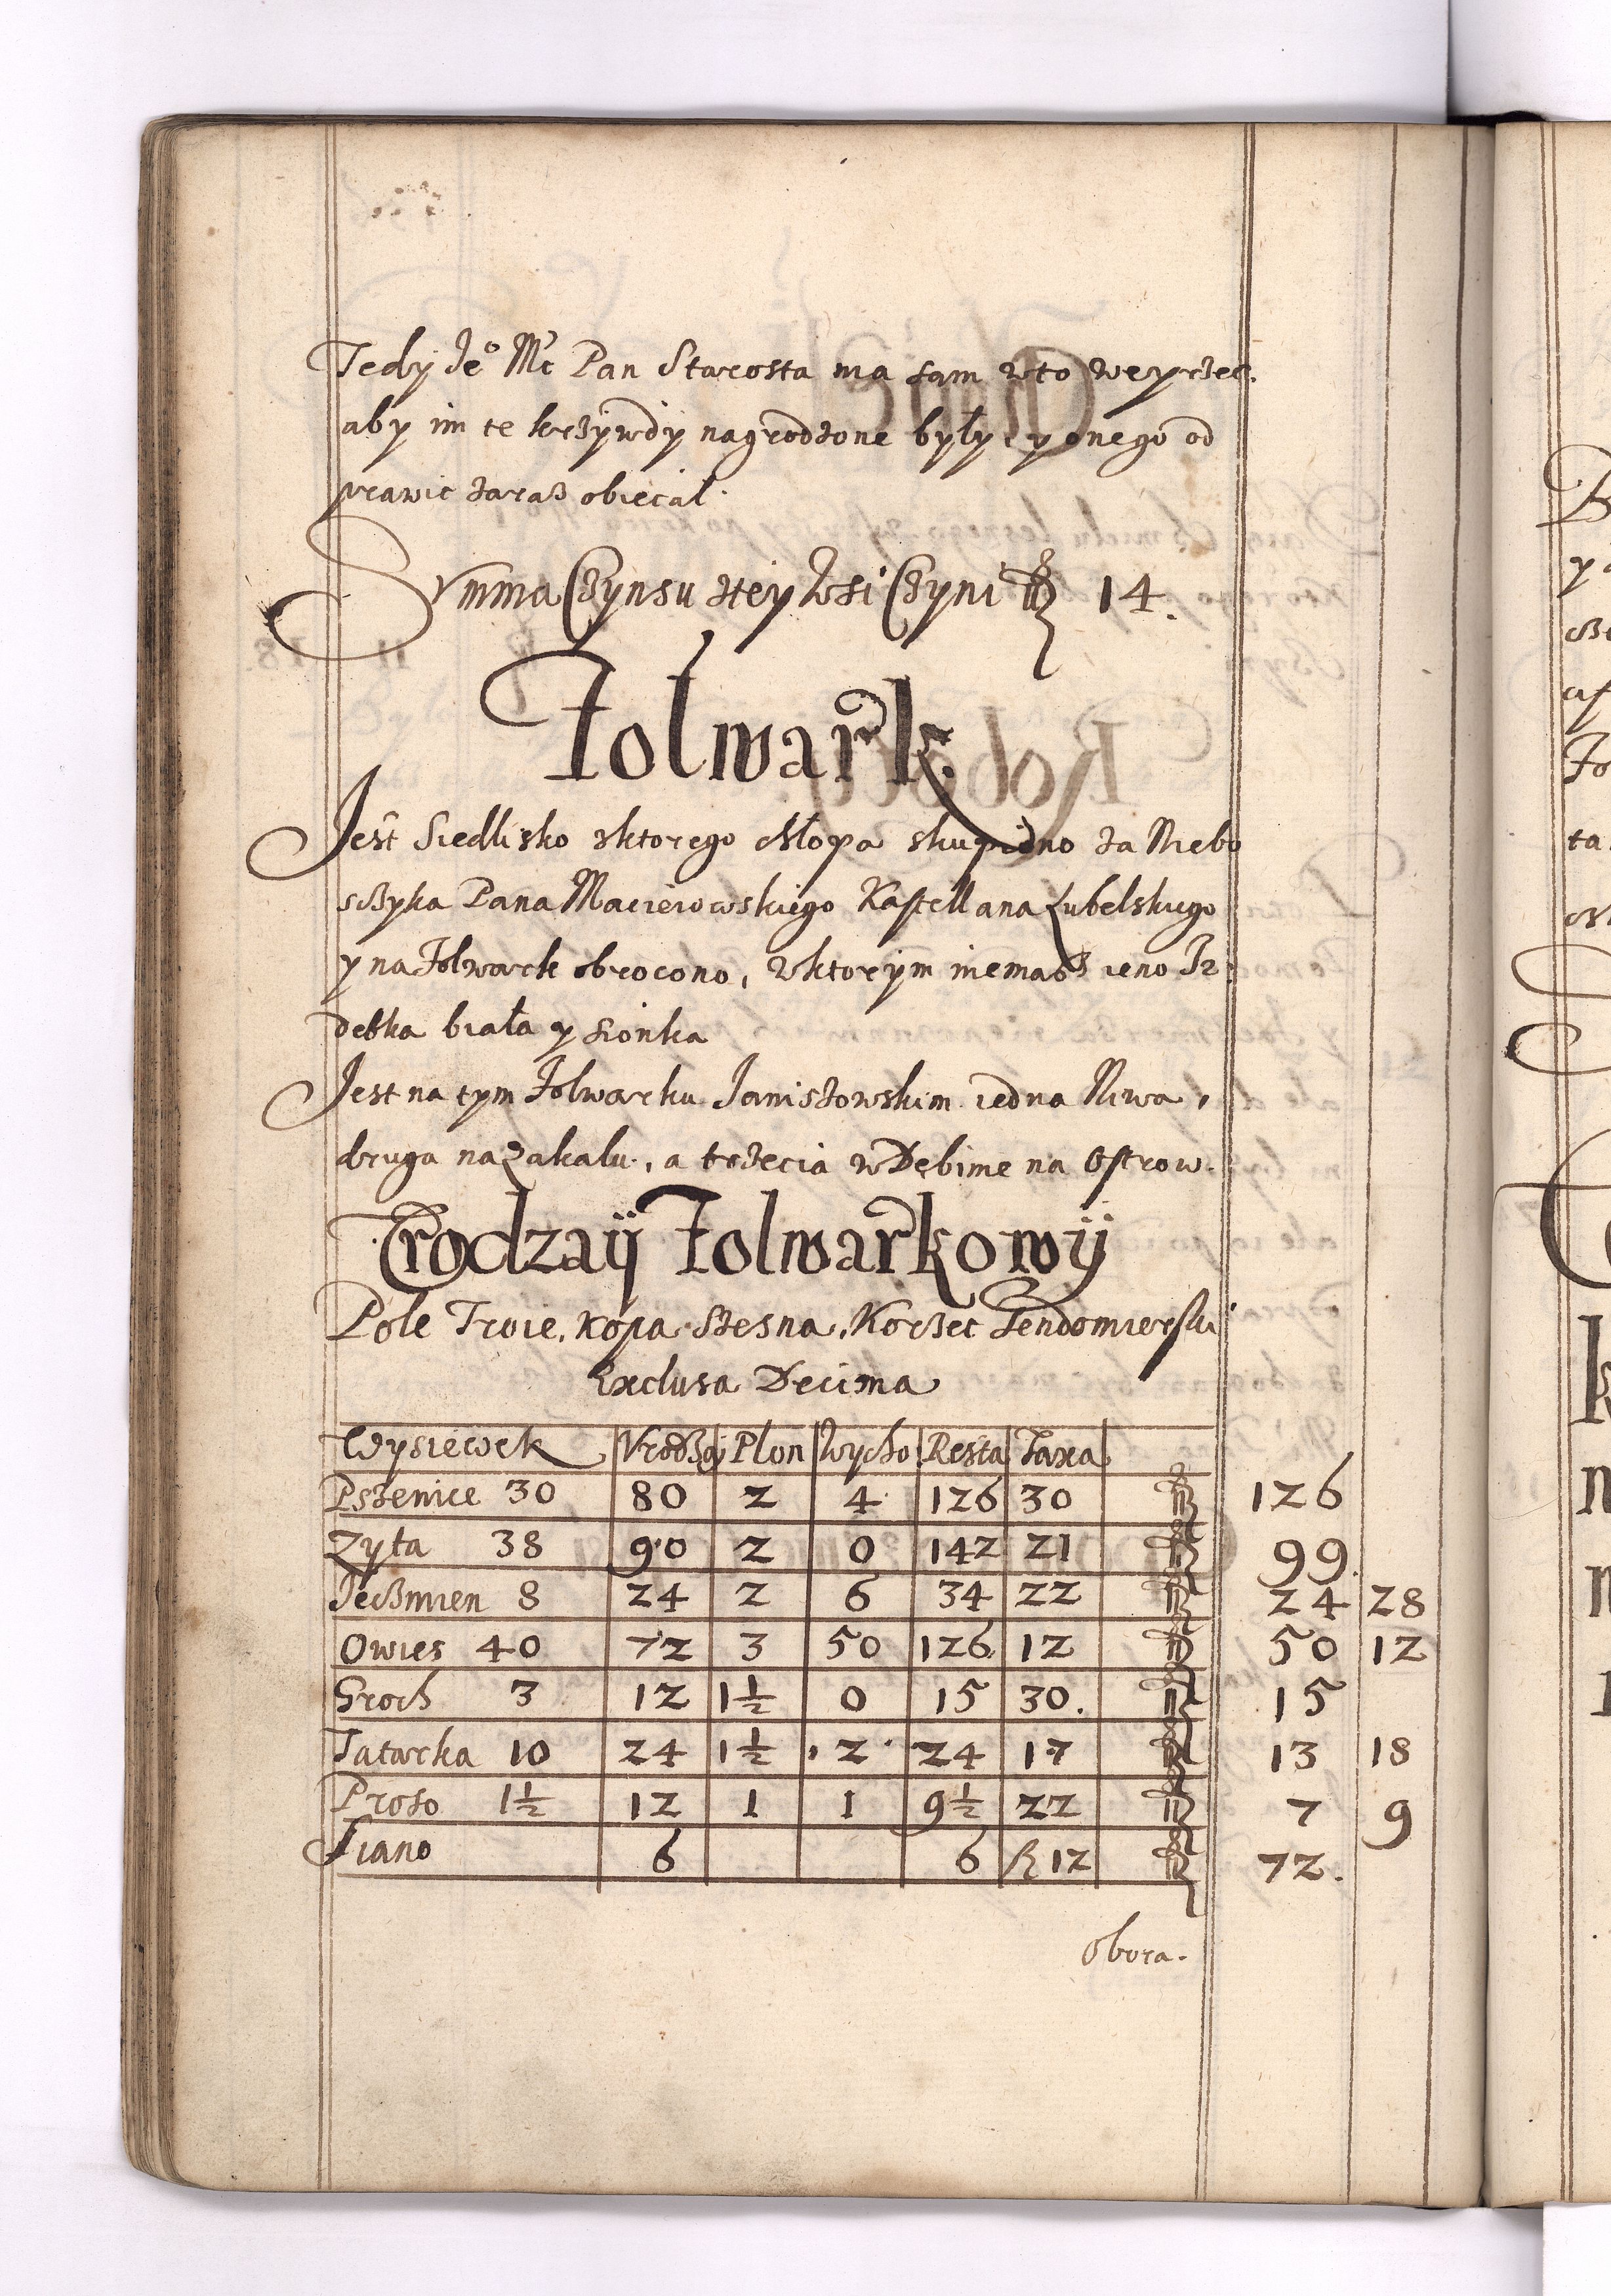 Tedy Je° Mc Pan Starosta ma sam wto weyrzec.
aby im te krzywdy nagrodzone były, y onego od
prawic zaraz obiecał.
Summa Czynsu ztey Wsi Czyni 14.
Folwark.
Jest Siedlisko zktorego Chłopa skupiono za Niebo
sczyka Pana Macieiowskiego Kastellana Lubelskiego
y na Folwark obrocono, wktorym niemasz ieno Iz
debka biała y sionka
Jest na tym Folwarku Janiszowskim iedna Niwa,
druga na Zakalu, a trzecia w Dębinie na Ostrow.
Urodzaij Folwarkowij
Pole Troie, Kopa Szesna, Korzec Sendomierski
Exclusa Decima
Wysiewek Vrodzaj Plon Wycho: Resta Taxa
Pszenice 30 80 2 4 126 30 126
Zyta 38 90 2 0 142 21 99.
Jeczmien 8 24 2 6 34 22 24 28
Owies 40 72 3 50 126 12 50 12
Groch 3 12 1½ 0 15 30. 15
Tatarka 10 24 1½ 2 24 17 13 18
Proso 1½ 12 1 1 9½ 22 7 9
Siano 6 6 12 72.
Obora.